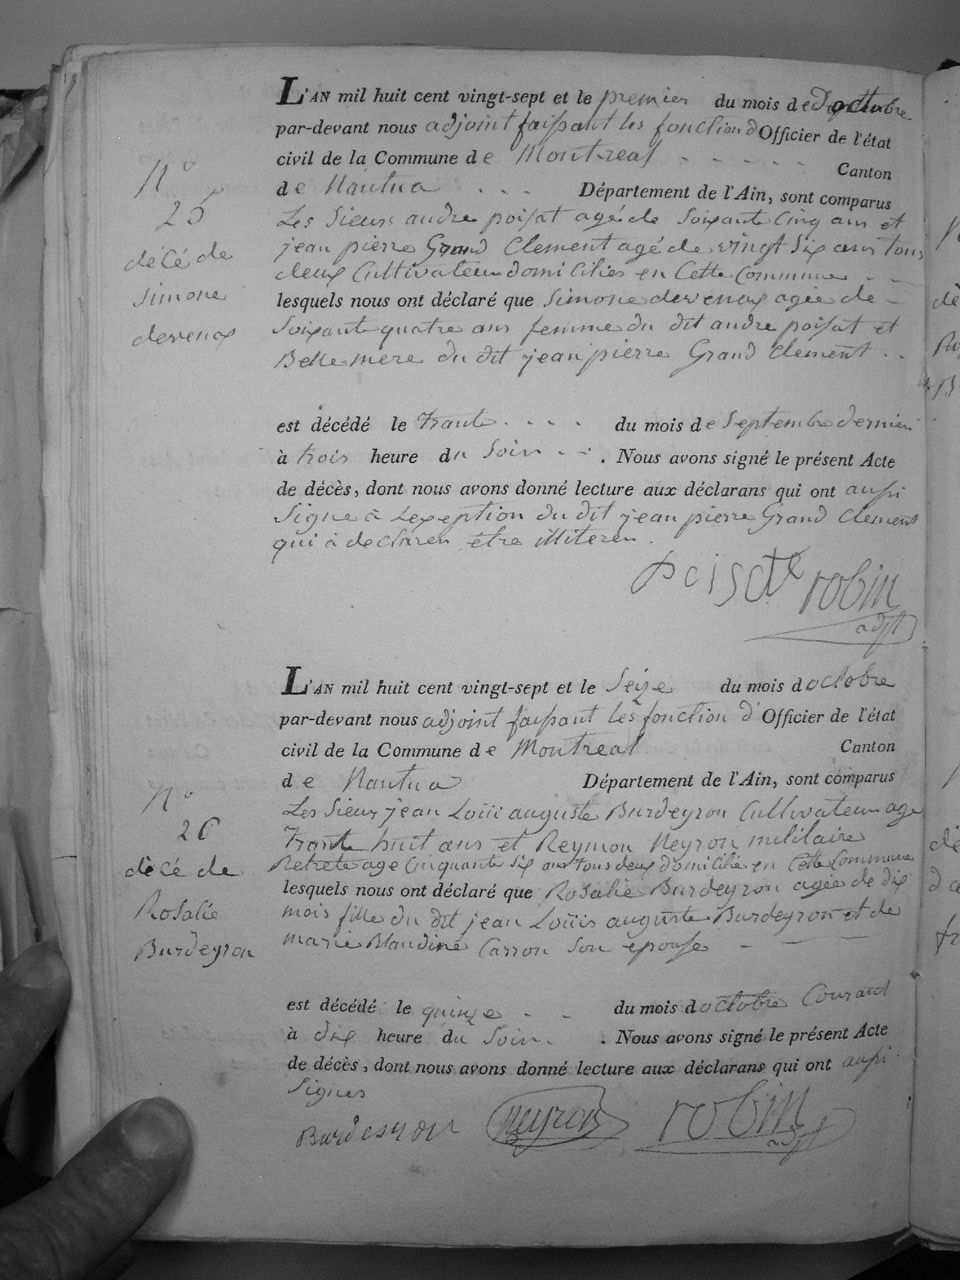 L'AN mil huit cent vingt-sept et le premier du mois de octobre
par-devant nous adjoint faisant les fonction d'Officier de l'état
civil de la Commune de Montreal - - - - - Canton
de Nantua . . . Département de l'Ain, sont comparus
N° 25
décé de
Simone
devenax
Les Sieurs andre poisat agé de Soixante Cinq ans et
jean pierre Grand Clement agé de vingt Six ans tous
deux Cultivateur domiciliés en Cette Commune - -
lesquels nous ont déclaré que Simone devenax agée de -
Soixante quatre ans femme du dit andre poisat et
Belle mere du dit jean pierre Grand Clement . .
est décédé le trante . . . . du mois de Septembre dernier
à trois heure du Soir - - . Nous avons signé le présent Acte
de décès, dont nous avons donné lecture aux déclarans qui ont aussi
Signe à Lexeption du dit jean pierre Grand Clement
qui à declarer etre illiteren .
poisat robin
adjt
L'AN mil huit cent vingt-sept et le Seize du mois doctobre
par-devant nous adjoint faisant les fonction d'Officier de l'état
civil de la Commune de Montreal Canton
de Nantua Département de l'Ain, sont comparus
N° 26
décé de
Rosalie
Burdeyron
Les Sieur jean Loüis auguste Burdeyron Cultivateur age
trante huit ans et Reymon Neyron militaire
Retrete age Cinquante six ans tous deux domicilie en Cette Commune
lesquels nous ont déclaré que Rosalie Burdeyron agée de dix
mois fille du dit jean Loüis auguste Burdeyron et de
marie Blandine Carron Son épouse - - -
est décédé le quinze - - du mois doctobre Courant
à dix heure du Soir. . Nous avons signé le présent Acte
de décès, dont nous avons donné lecture aux déclarans qui ont aussi
Signes
Burdeyron neyron robin
adjt